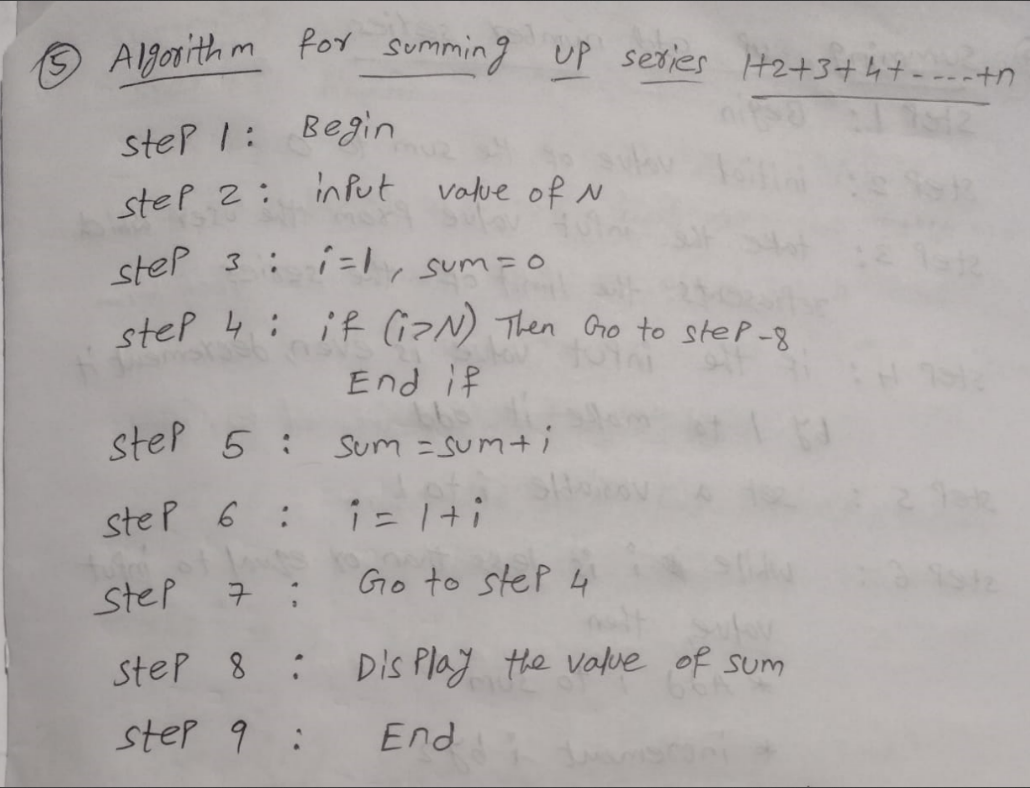 ⑤ Algorithm for summing up series 1+2+3+4+-----+n
step 1: Begin
step 2: input value of N
step 3: i=1, sum=0
step 4: if (i>N) Then Go to step-8
End if
step 5: sum=sum+i
step 6: i=1+i
step 7: Go to step 4
step 8: Display the value of sum
step 9: End